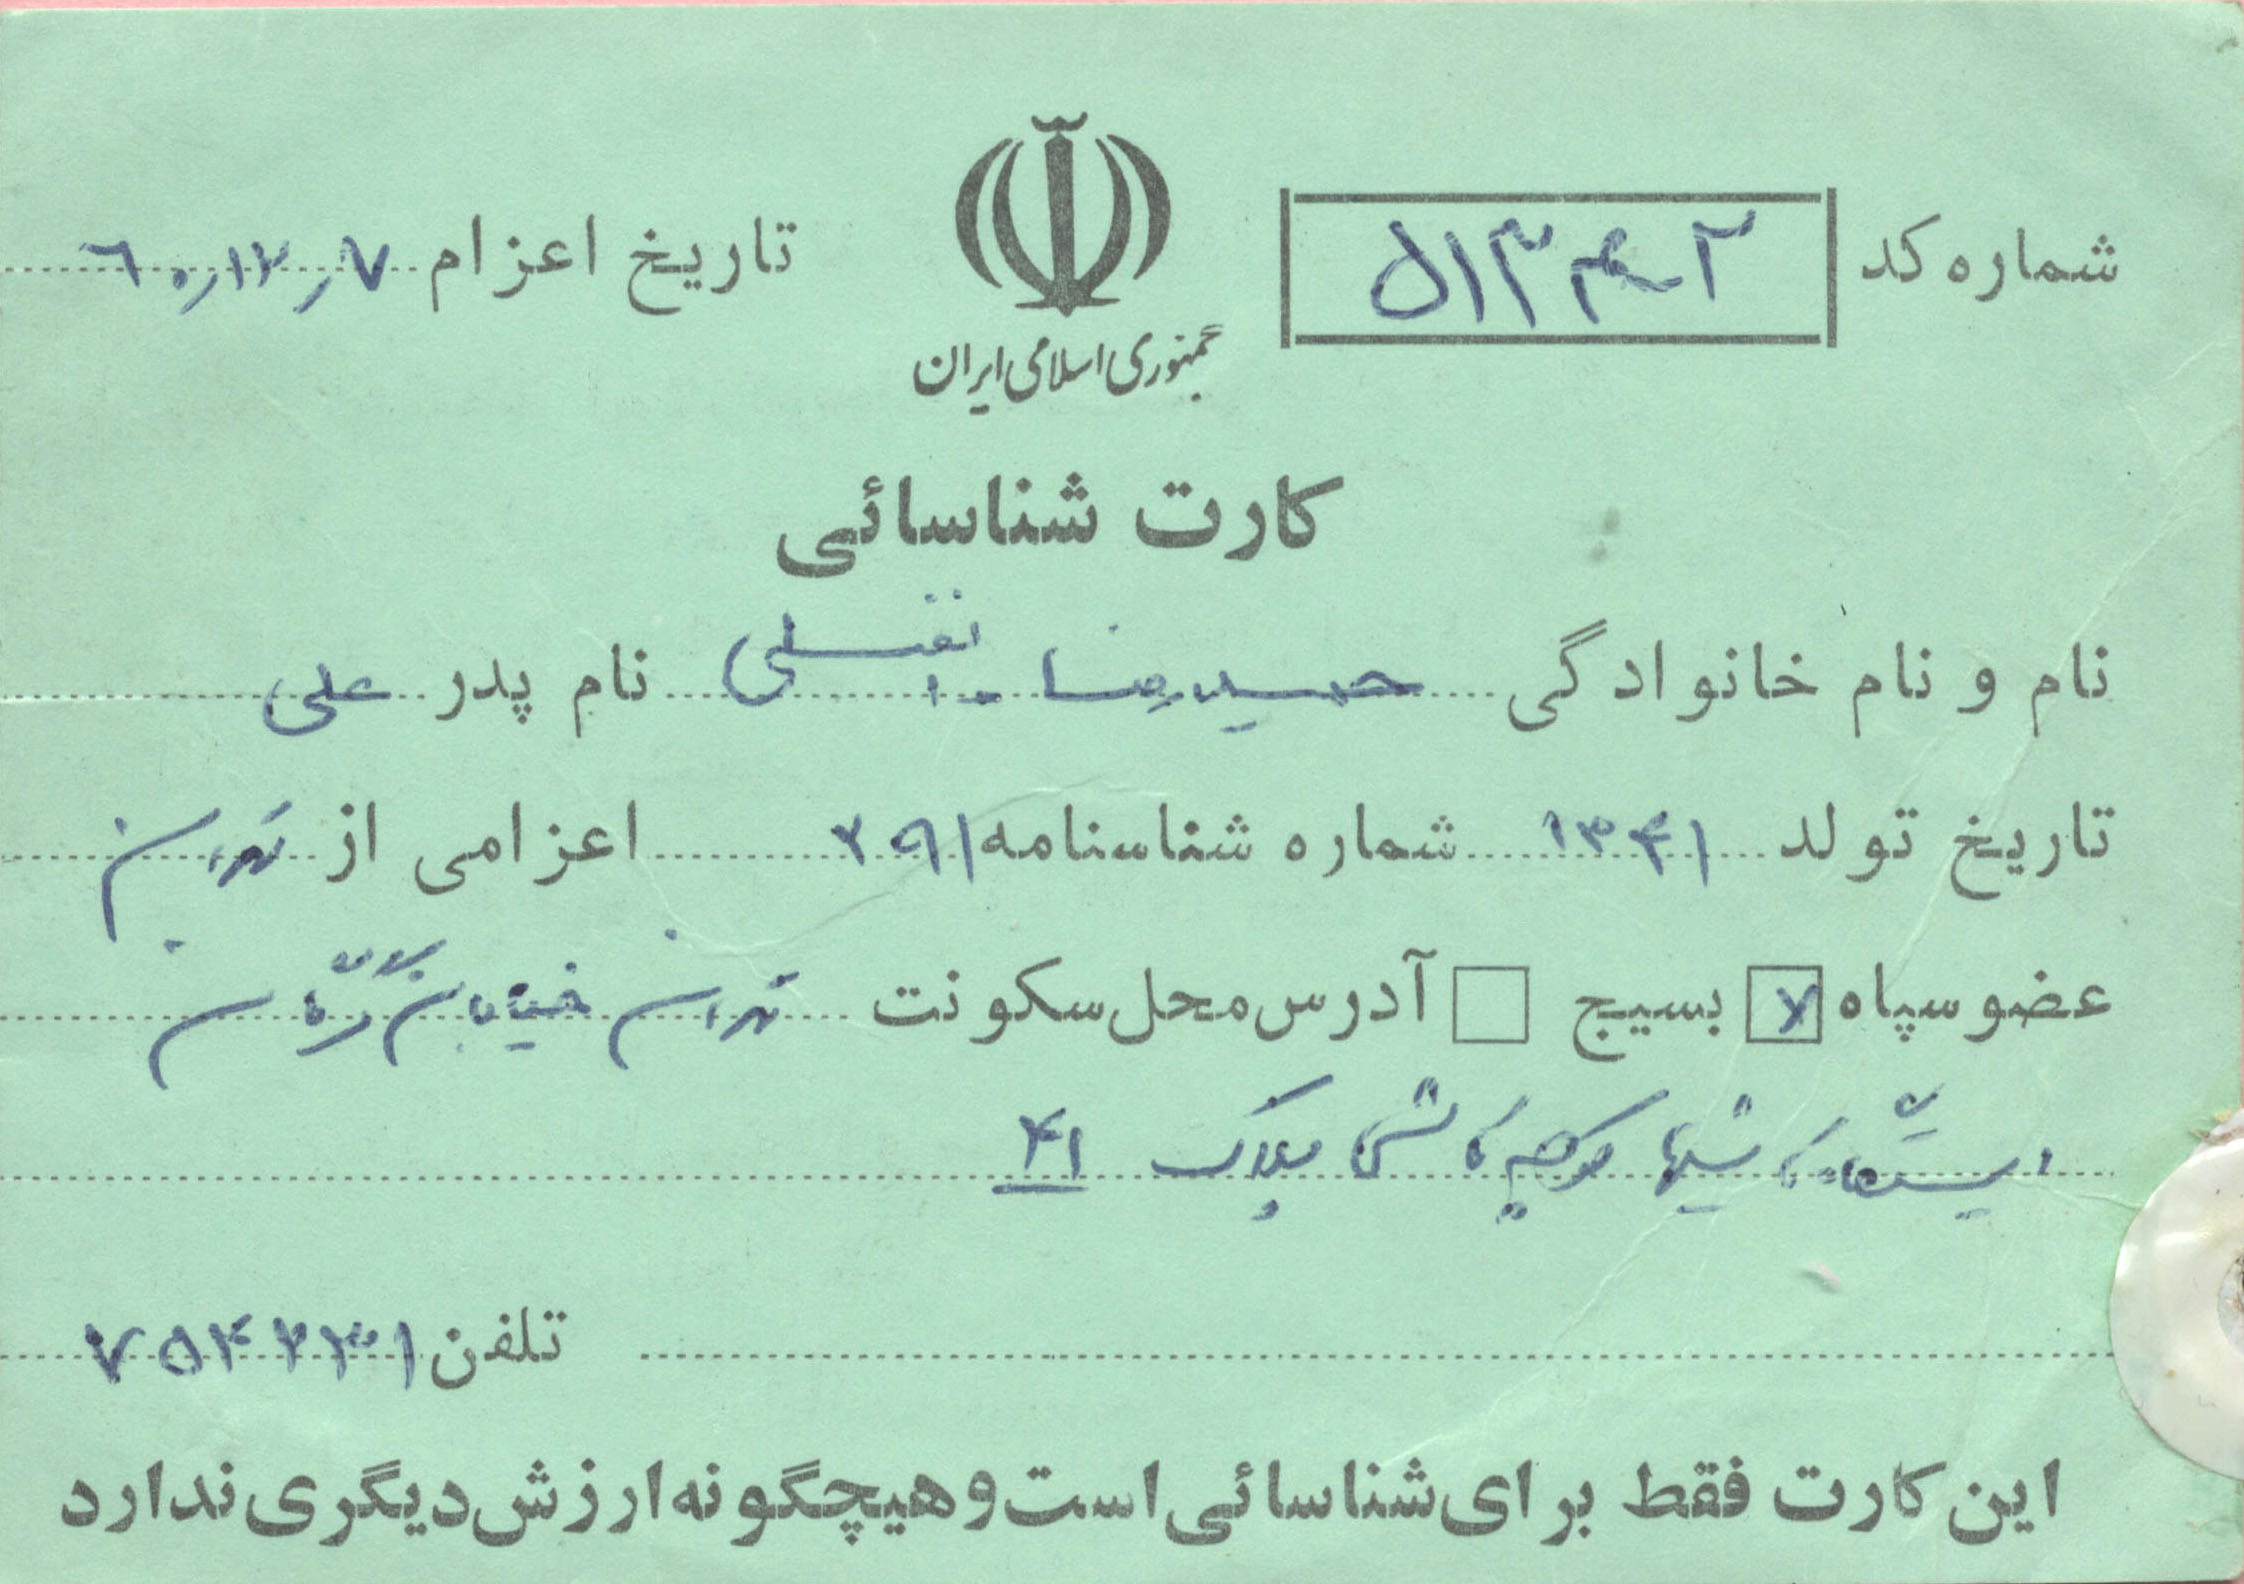 شماره کد ۵۱۳۴-۲
جمهوری اسلامی ایران
تاریخ اعزام ۶۰/۱۲/۷
کارت شناسائی
نام و نام خانوادگی حمیدرضا نام پدر علی
تاریخ تولد ۱۳۴۱ شماره شناسنامه ۲۹۱ اعزامی از تهران
عضو سپاه بسیج آدرس محل سکونت تهران خیابان
ایستگاه کاشیها کوچه کاشی پلاک ۴۱
تلفن ۷۵۴۲۳۱
این کارت فقط برای شناسائی است و هیچگونه ارزش دیگری ندارد